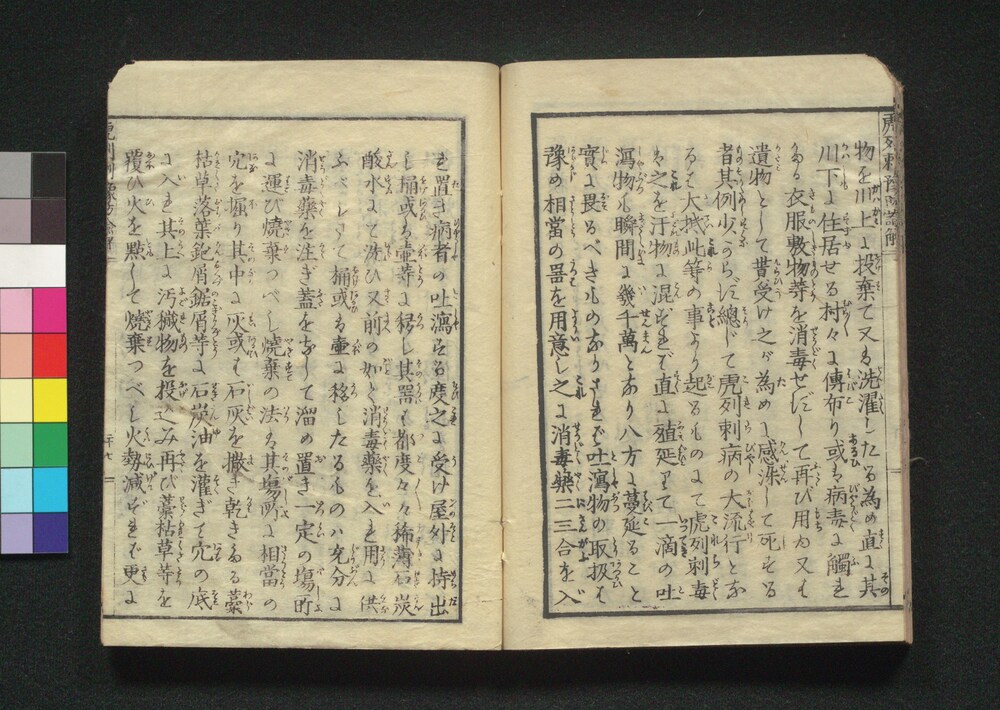 物を川上に投棄て又は洗濯したる為め直に其
川下に住居せる村々に傳布り或は病毒に觸れ
たる衣服敷物等を消毒せずして再び用ゐ又は
遺物として貰受け之が為めに感染して死せる
者其例少からず總じて虎列刺病の大流行とな
るは大抵此等の事より起るものにて虎列刺毒
は之を汙物に混ずれば直に殖延て一滴の吐
瀉物も瞬間に幾千萬となり八方に蔓延ること
實に畏るべきものなりされば吐瀉物の取扱は
豫め相當の器を用意し之に消毒藥二三合を入
れ置き病者の吐瀉する度之に受け屋外に持出
し桶或は壷等に移し其器は都度々々稀薄石炭
酸水にて洗ひ又前の如く消毒藥を入れ用に供
ふべしさて桶或は壷に移したるものハ充分に
消毒藥を注ぎ蓋をなして溜め置き一定の塲所
に運び燒棄つべし燒棄の法は其塲所に相當の
穴を掘り其中に灰或は石灰を撒き乾きたる藁
枯草落葉鉋屑鋸屑等に石炭油を灌ぎて穴の底
に入れ其上に汚穢物を投込み再び藁枯草等を
覆ひ火を點して燒棄つべし火勢減ずれば更に